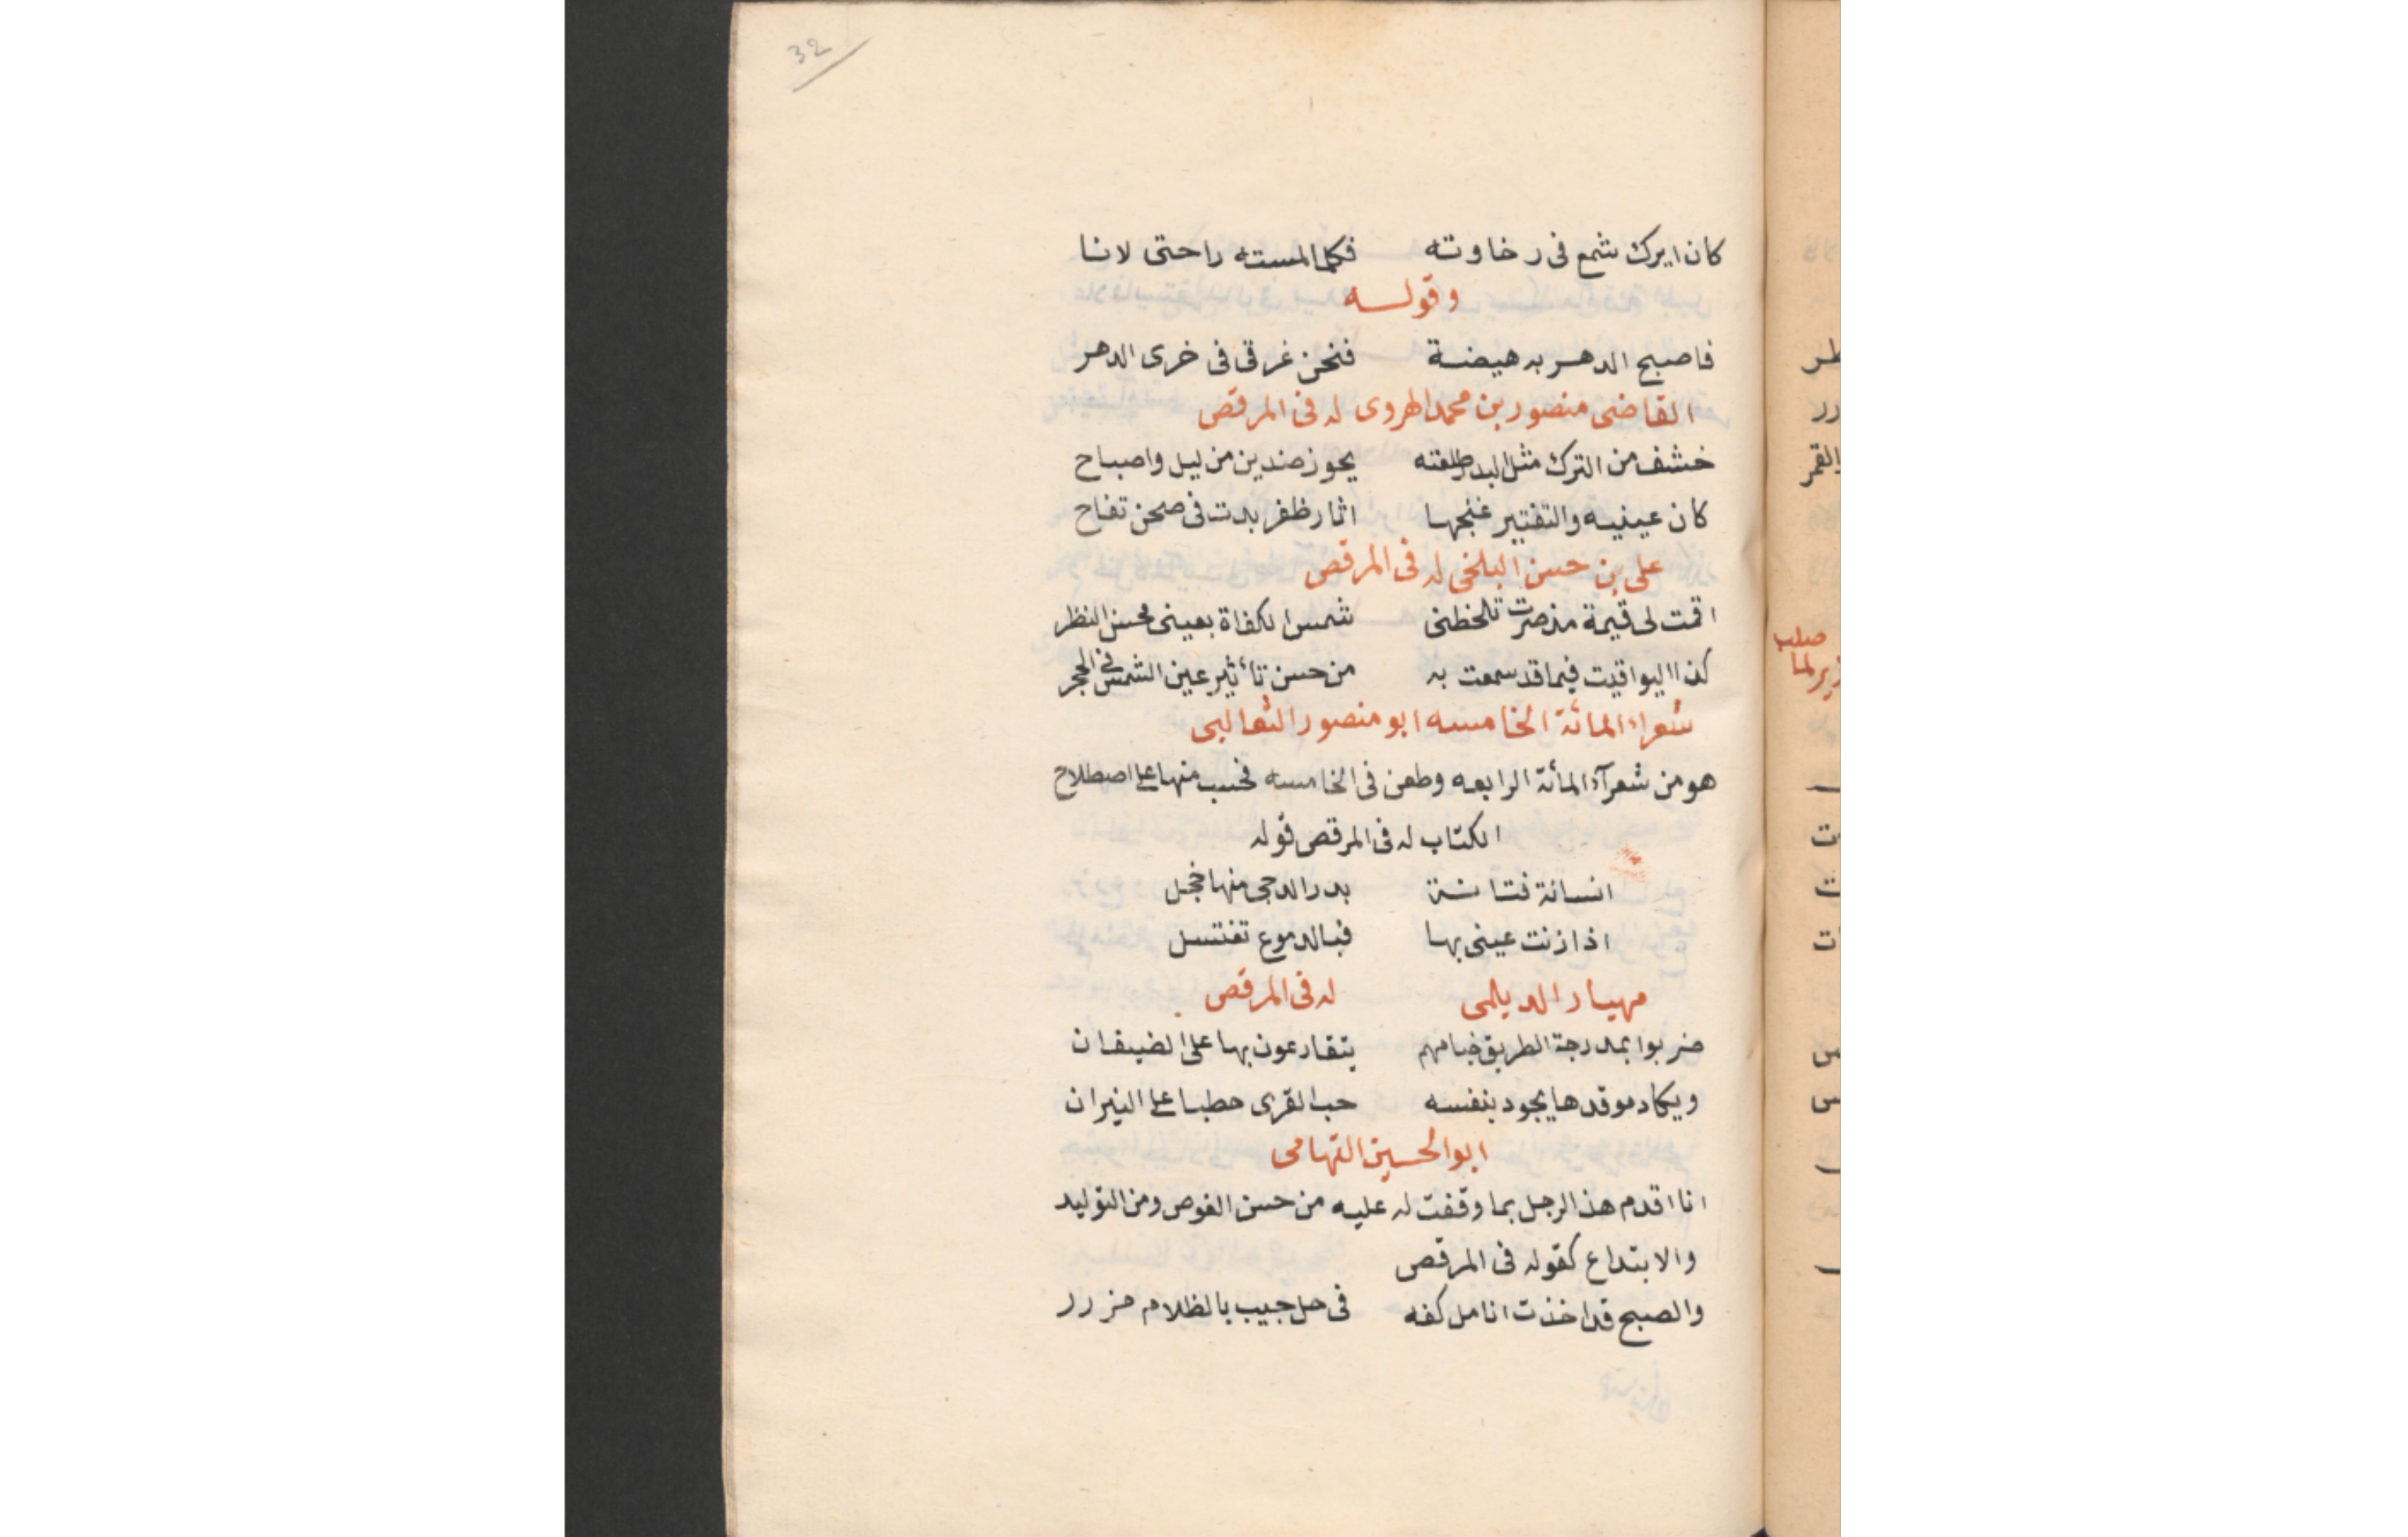 32
كان ايرك شمع فى رخاوته فكلما لمسته راحتى لانا
وقولـــه
فاصبح الدهـر به هيضـة فنحن غرقى فى خرى الدهر
القاضى منصور بن محمد الهروى له فى المرقص
خشف من الترك مثل البدر طلعته يحوز ضدين من ليل واصباح
كان عينيه والتفتير غنجها اثار ظفر بدت فى صحن تفاح
على بن حسن البلخى له فى المرقص
اقمت لى قيمة مذ صرت تلحظنى شمس الكفاة بعينى محسن النظر
كذا اليواقيت فيما قد سمعت به من حسن تأثير عين الشمس فى الحجر
شعراء المائة الخامسه ابو منصور الثعالبى
هو من شعرآء المأئة الرابعه وطعن فى الخامسه فحسب منها على اصطلاح
الكتاب له فى المرقص قوله
انسانة فتانـة بدر الدجى منها خجل
اذا زنت عينى بها فبالدموع تغتسل
مهيار الديلمى له فى المرقص
ضربوا بمدرجة الطريق خيامهم يتقارعون بها على الضيفان
ويكاد موقدها يجود بنفسه حب القرى حطبا على النيران
ابو الحسين التهامى
انا اقدم هذ الرجل بما وقفت له عليه من حسن الغوص ومن التوليد
والابتداع كقوله فى المرقص
والصبح قد اخذت انامل كفه فى حل جيب بالظلام مزرر
طر
رر
القمر
صلب
ت
ت
ات
س
س